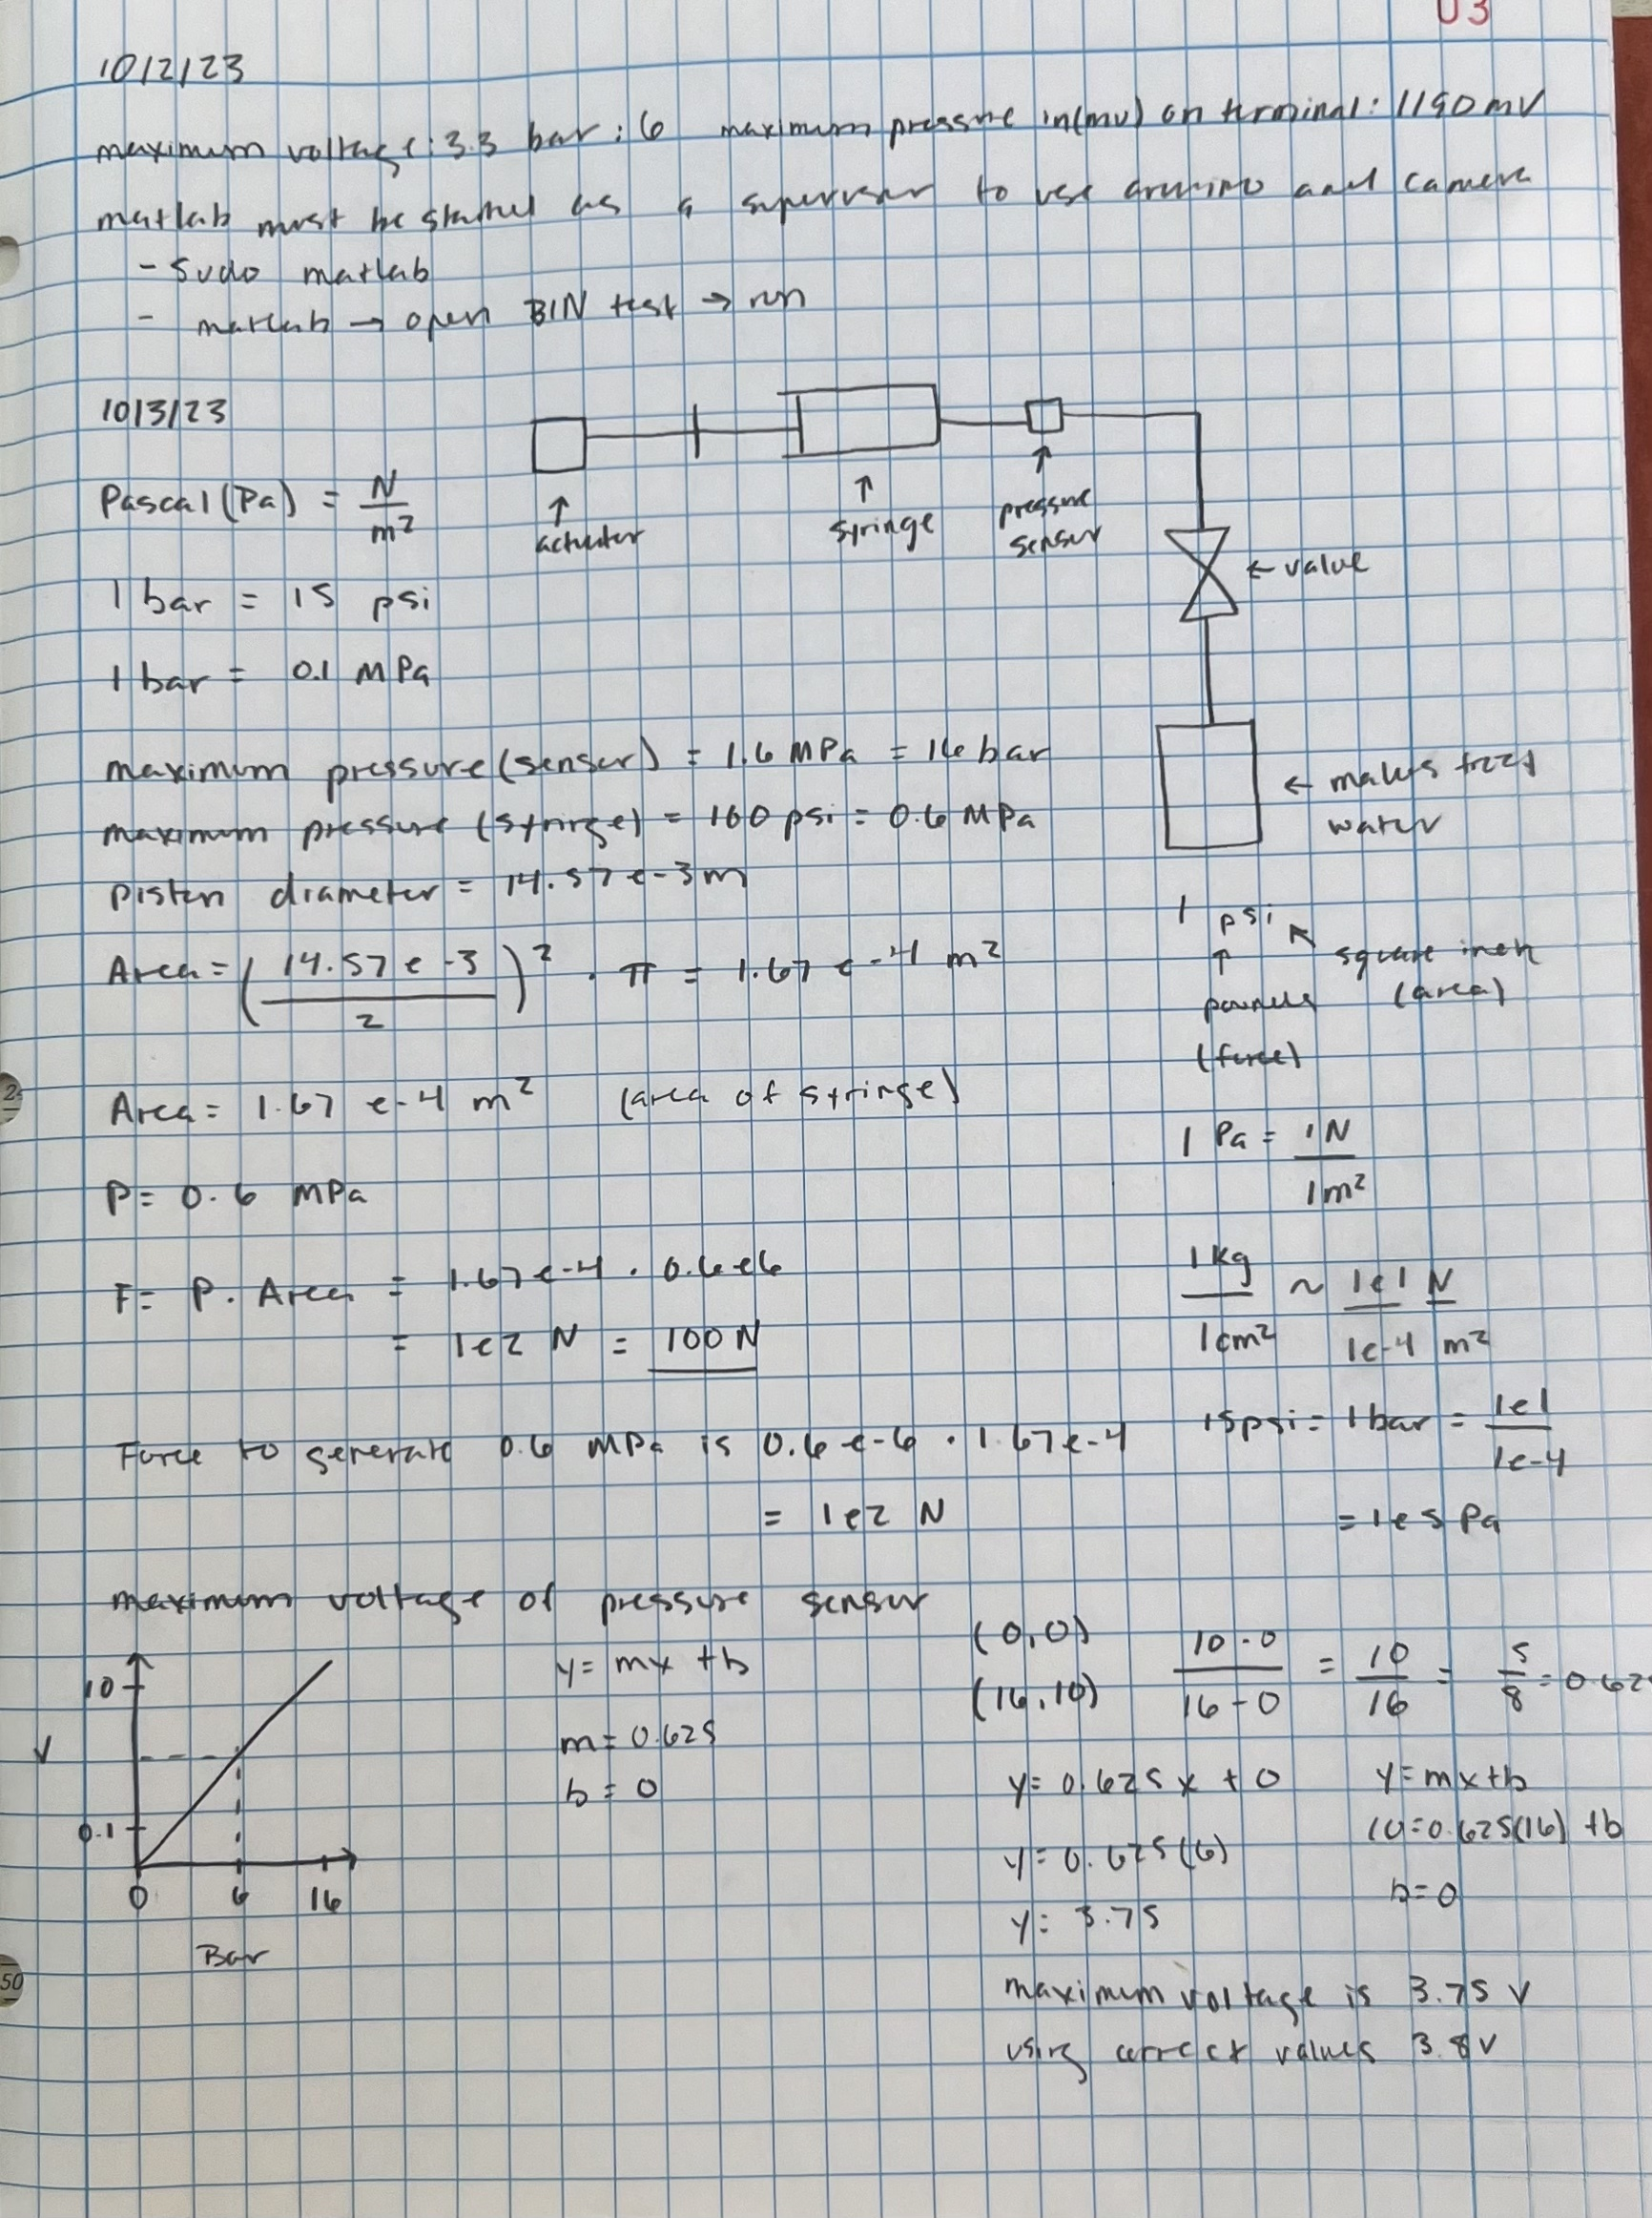 03
10/2/23
maximum voltage: 3.3 bar: 6 maximum pressure in(mv) on terminal: 1190mV
matlab must be started as a supervisor to use arduino and camera
- sudo matlab
- matlab → open BIN test → run
10/3/23
Pascal(Pa) = N/m²
↑
actuator
↑
syringe
↑
pressure
sensor
← value
1 bar = 15 psi
1 bar = 0.1 MPa
maximum pressure (sensor) = 1.6 MPa = 16 bar
maximum pressure (syringe) = 100 psi = 0.6 MPa
← makes
water
piston diameter = 14.57e-3m
Area = (14.57e-3/2)² · π = 1.67e-4 m²
1 psi
↑ pounds (force)
↖ square inch (area)
Area = 1.67 e-4 m² (area of syringe)
1 Pa = 1N/1m²
P = 0.6 MPa
F = P. Area = 1.67e-4 · 0.6e6
= 1e2 N = 100N
1kg/1cm² ~ 1e1 N/1e-4 m²
Force to generate 0.6 MPa is 0.6e-6 · 1.67e-4
= 1e2 N
15psi = 1bar = 1e1/1e-4
= 1e5 Pa
maximum voltage of pressure sensor
10
V
0.1
0 6 16
Bar
y = mx + b
m = 0.625
b = 0
(0,0)
(16,10)
10-0/16-0 = 10/16 = 5/8 = 0.62
y = 0.625x + 0
y = 0.625(6)
y = 3.75
y = mx+b
10 = 0.625(16) + b
b = 0
maximum voltage is 3.75 V
using correct values 3.8V
2
50